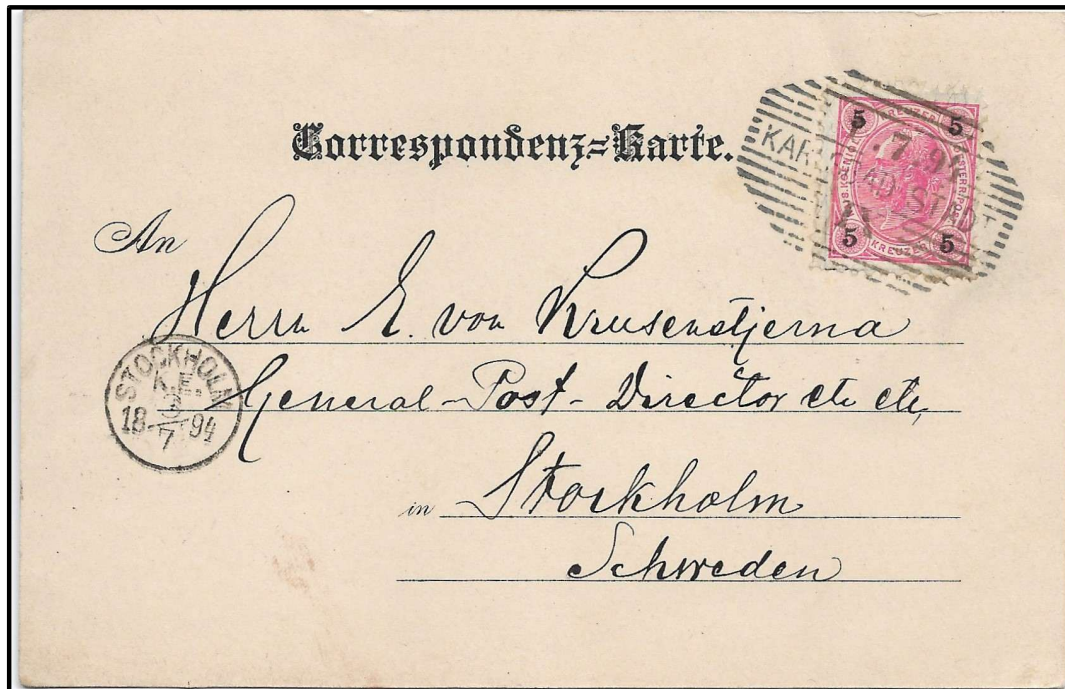 Correspondenz=Karte.
5 5
KREUZER
5 5
.7.94
STADT
An
Herrn E. von Krusenstjerna
General-Post-Director etc etc,
in Stockholm
Schweden
STOCKHOLM
K.E.
18 94
7